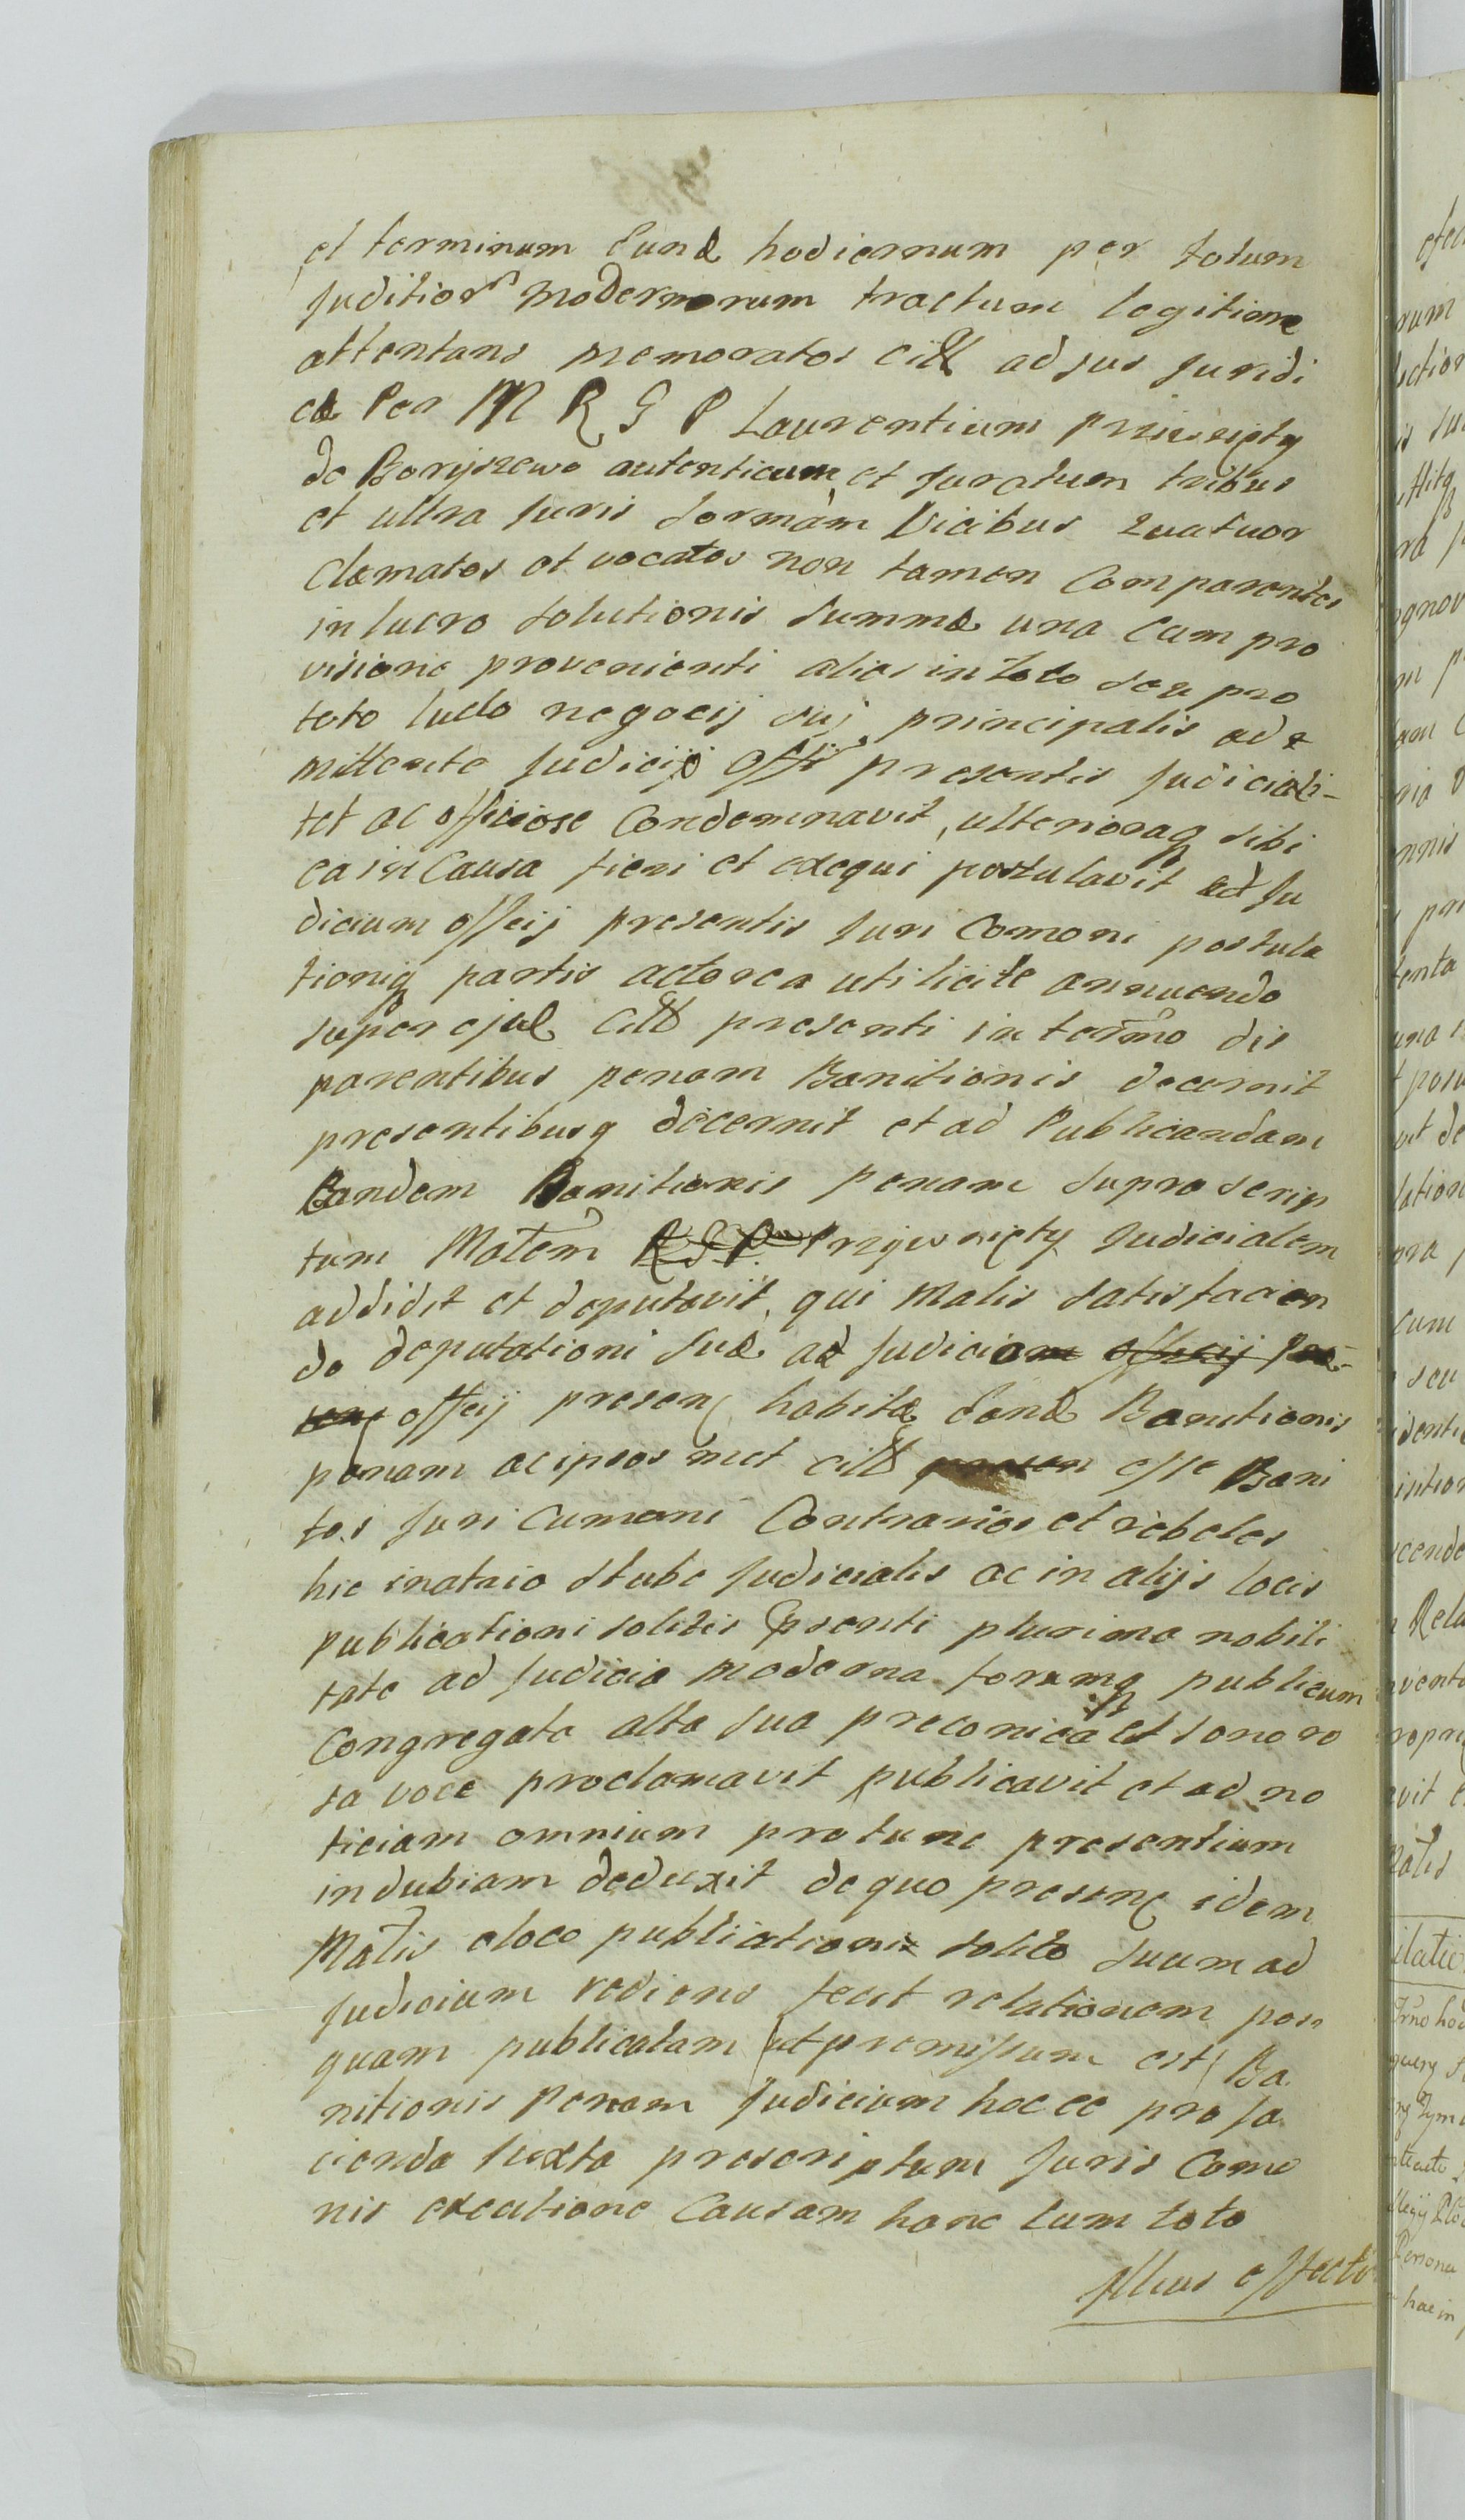 et terminum eund hodiernum per totum
Juditior modernorum tractum legitime
attentans memoratos citt ad jus Juridi
ce Per M R G P Laurentium Przierięty
de Boryszewo autenticum et Juratum tribus
et ultra Juris formam Vicibus Quatuor
Clamatos et vocatos non tamen Comparentes
in lucro solutionis summæ una cum pro
visione provenienti alias in toto seu pro
toto ludo negocij suj principalis ad
mittente Judicij Offi presentis Judiciali-
tet ac officiose Condemnavit, ulterioraq sibi
ea in Causa fieri et exequi postulavit et Ju
dicium offcij presentis Juri Comoni postula
tioniq partis actorea utilicite annuendo
super ejusd Citt presenti in termo dis
parentibus penam Banitionis decernit
presentibusq decernit et ad Publicandam
Eandem Banitionis penam suprascrip
tum Matem RGP Przyierięty Judicialem
addidit et deputavit, qui Matis satisfacien
do deputationi suæ ad Judicium officij pre-
sen offcij presen habitæ eand Banitionis
penam ac ipsos met citt presen esse Bani
tos Juri Cumoni Contrarios et rebeles
hic in atrio stubæ Judicialis ac in alijs locis
publicationi solitis psenti plurima nobili
tate ad Judicia moderna forumq publicum
Congregata alta sua preconica et sonoro
sa voce proclamavit publicavit et ad no
ticiam omnium protunc presentium
indubiam deduxit de quo presenc idem
Matis eloco publicationis solito suum ad
Judicium rediens fecit relationem pos
quam publicatam ut premissum est Ba
nitionis Penam Judicium hocce pro fa
cienda Juxta prescriptum Juris Como
nis executione Causam hanc cum toto
Illius effectu